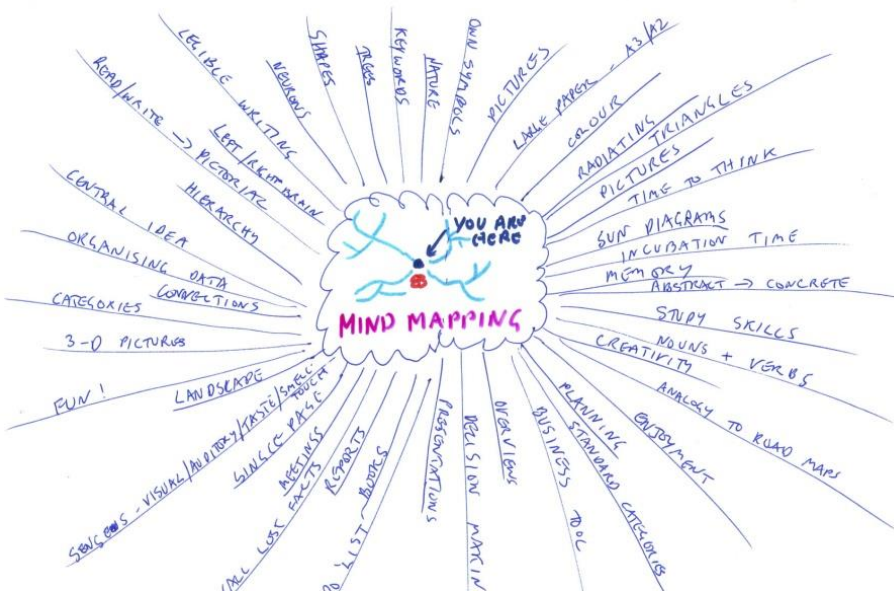 YOU ARE
HERE
MIND MAPPING
OWN SYMBOLS
PICTURES
LARGE PAPER - A3/A2
COLOUR
RADIATING
TRIANGLES
PICTURES
TIME TO THINK
SUN DIAGRAMS
INCUBATION TIME
MEMORY
ABSTRACT → CONCRETE
STUDY SKILLS
NOUNS + VERBS
CREATIVITY
ANALOGY TO ROAD MAPS
ENJOYMENT
PLANNING
STANDARD CATEGORIES
BUSINESS TOOL
OVERVIEWS
DECISION MAKIN
PRESENTATIONS
BOOKS
O LIST
REPORTS
MEETINGS
ALL LOST FACTS
SINGLE PAGE
- VISUAL/AUDITORY/TASTE/SMELL
TOUCH
LANDSCAPE
FUN!
3-D PICTURES
CATEGORIES
CONNECTIONS
ORGANISING DATA
CENTRAL IDEA
HIERARCHY
READ/WRITE → PICTORIAL
LEFT/RIGHT BRAIN
LEGIBLE WRITING
NEURONS
SHAPES
TREES
KEYWORDS
NATURE